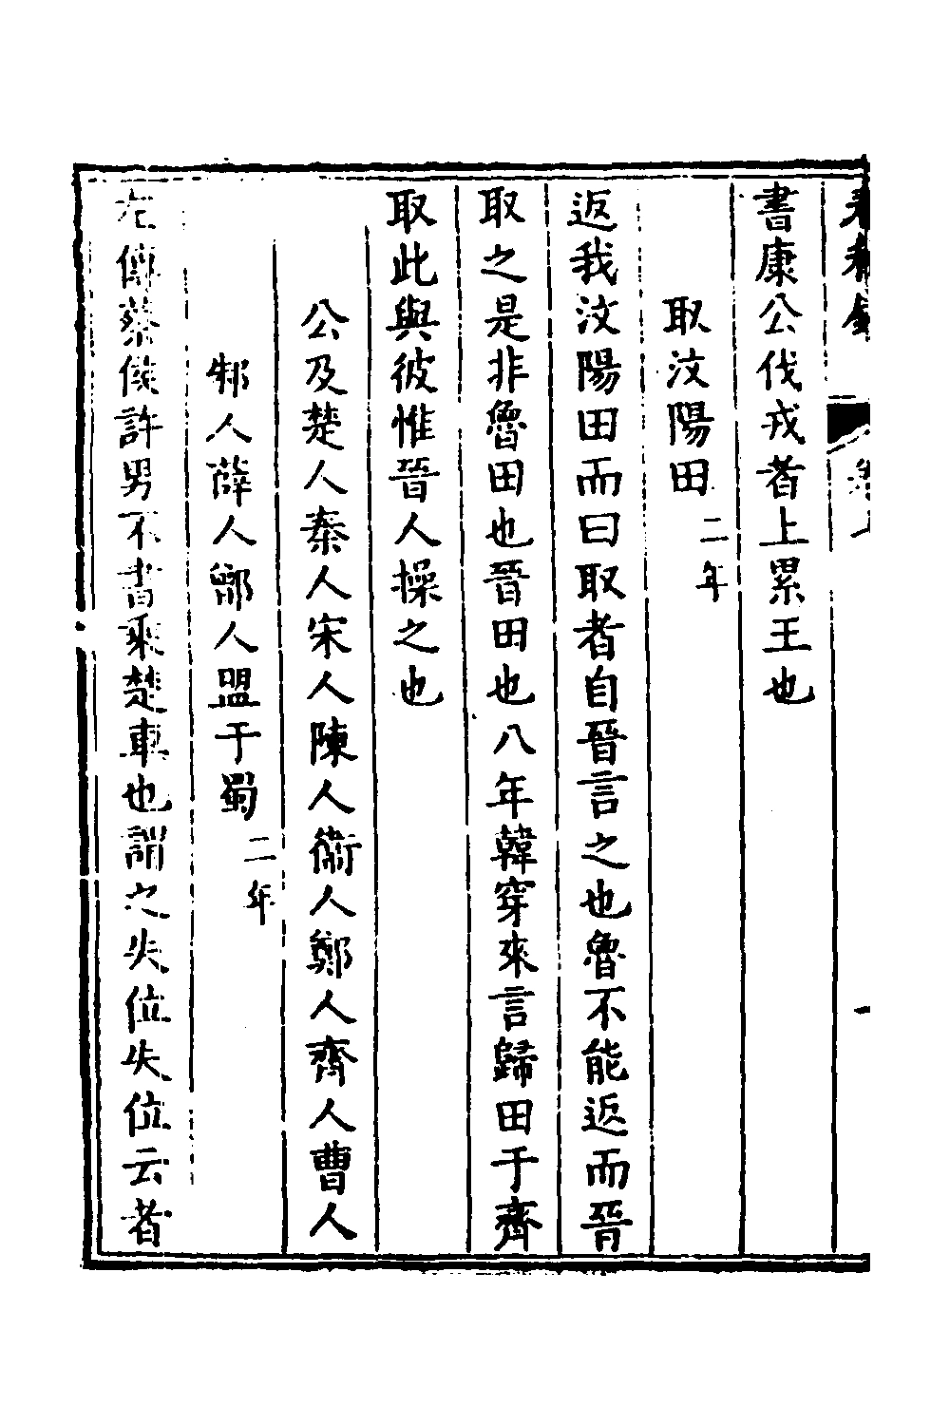 書康公伐戎者上累王也
取汶陽田二年
返我汶陽田而曰取者自晉言之也魯不能返而晉
取之是非魯田也晉田也八年韓穿來言歸田于齊
取此與彼惟晉人操之也
公及楚人秦人宋人陳人衞人鄭人齊人曹人
邾人薛人鄫人盟于蜀二年
左傳蔡侯許男不書乘楚車也謂之失位失位云者